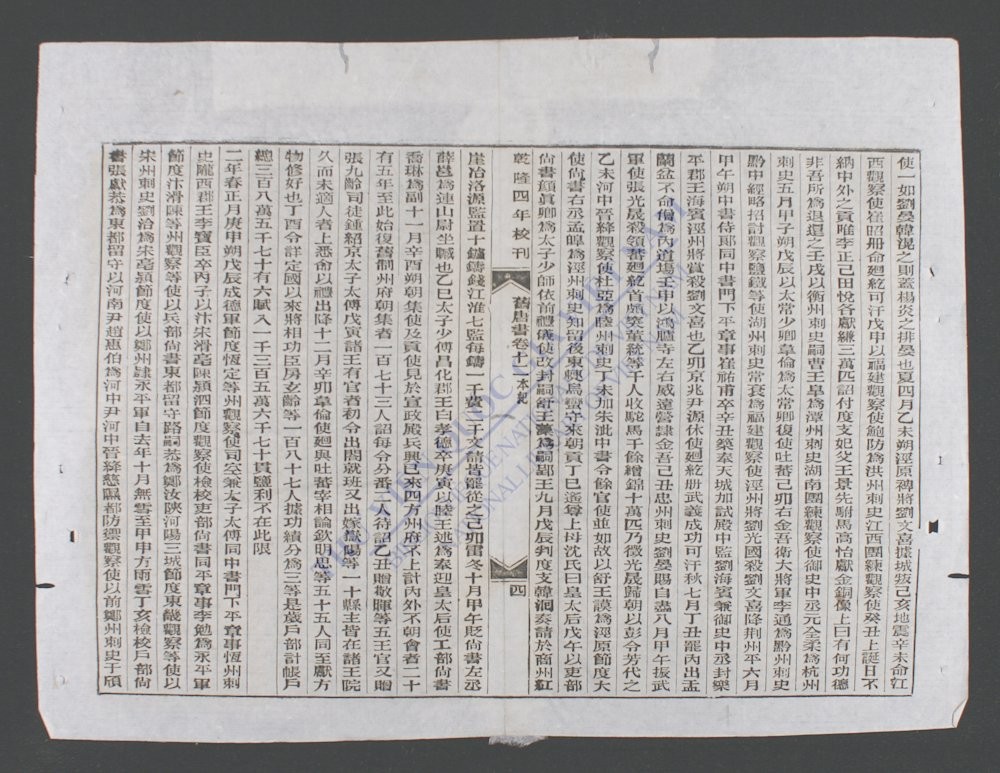 使一如劉晏韓滉之則蓋楊炎之排晏也夏四月乙未朔涇原裨將劉文喜據城叛己亥地震辛未命江
西觀察使崔昭册命廻紇可汗戊申以福建觀察使鮑防爲洪州刺史江西團練觀察使癸丑上誕日不
納中外之貢唯李正己田悅各獻縑三萬匹詔付度支妃父王景先駙馬高怡獻金銅像上曰有何功德
非吾所爲退還之壬戌以衡州刺史嗣曹王皐爲潭州刺史湖南團練觀察使御史中丞元全柔爲杭州
刺史五月甲子朔戊辰以太常少卿韋倫爲太常卿復使吐蕃己卯右金吾衞大將軍李通爲黔州刺史
黔中經略招討觀察鹽鐵等使湖州刺史常袞爲福建觀察使涇州將劉光國殺劉文喜降荆州平六月
甲午朔中書侍郎同中書門下平章事崔祐甫卒辛丑築奉天城加試殿中監劉海賓兼御史中丞封樂
平郡王海賓涇州將實殺劉文喜也乙卯京兆尹源休使廻紇册武義成功可汗秋七月丁丑罷內出盂
蘭盆不命僧爲內道場壬申以鴻臚寺左右威遠營隸金吾己丑忠州刺史劉晏賜自盡八月甲午振武
軍使張光晟殺領蕃廻紇首領突董統等千人收駝馬千餘繒錦十萬匹乃徵光晟歸朝以彭令芳代之
乙未河中晉絳觀察使杜亞爲睦州刺史丁未加朱泚中書令餘官使並如故以舒王謨爲涇原節度大
使尚書右丞孟皥爲涇州刺史知留後東爨烏蠻守來朝貢丁巳遙尊上母沈氏曰皇太后戊午以吏部
尚書顏眞卿爲太子少師依前禮儀使改封嗣舒王藻爲嗣郢王九月戊辰判度支韓洄奏請於商州紅
乾隆四年校刊
舊唐書卷十二
本紀
四
崖冶洛源監置十鑪鑄錢江淮七監每鑄一千費二千文請皆罷從之己卯雷冬十月甲午貶尚書左丞
薛邕爲連山尉坐贓也乙巳太子少傅昌化郡王白孝德卒庚寅以睦王述爲奉迎皇太后使工部尚書
喬琳爲副十一月辛酉朔朝集使及貢使見於宣政殿兵興已來四方州府不上計內外不朝會者二十
有五年至此始復舊制州府朝集者一百七十三人詔每令分番二人待詔乙丑贈敬暉等五王官又贈
張九齡司徒鍾紹京太子太傅戊寅諸王有官者初令出閤就班又出嫁嶽陽等一十縣主皆在諸王院
久而未適人者上悉命以禮出降十二月辛卯韋倫使廻與吐蕃宰相論欽明思等五十五人同至獻方
物修好也丁酉令詳定國以來將相功臣房玄齡等一百八十七人據功績分爲三等是歲戶部計帳戶
總三百八萬五千七十有六賦入一千三百五萬六千七十貫鹽利不在此限
二年春正月庚申朔戊辰成德軍節度恆定等州觀察使司空兼太子太傅同中書門下平章事恆州刺
史隴西郡王李寶臣卒丙子以汴宋滑亳陳潁泗節度觀察使檢校吏部尚書同平章事李勉爲永平軍
節度汴滑陳等州觀察等使以兵部尚書東都留守路嗣恭爲鄭汝陝河陽三城節度東畿觀察等使以
宋州刺史劉洽爲宋亳潁節度使以鄭州隸永平軍自去年十月無雪至甲申方雨雪丁亥檢校戶部尚
書張獻恭爲東都留守以河南尹趙惠伯爲河中尹河中晉絳慈隰都防禦觀察使以前鄭州刺史于頎